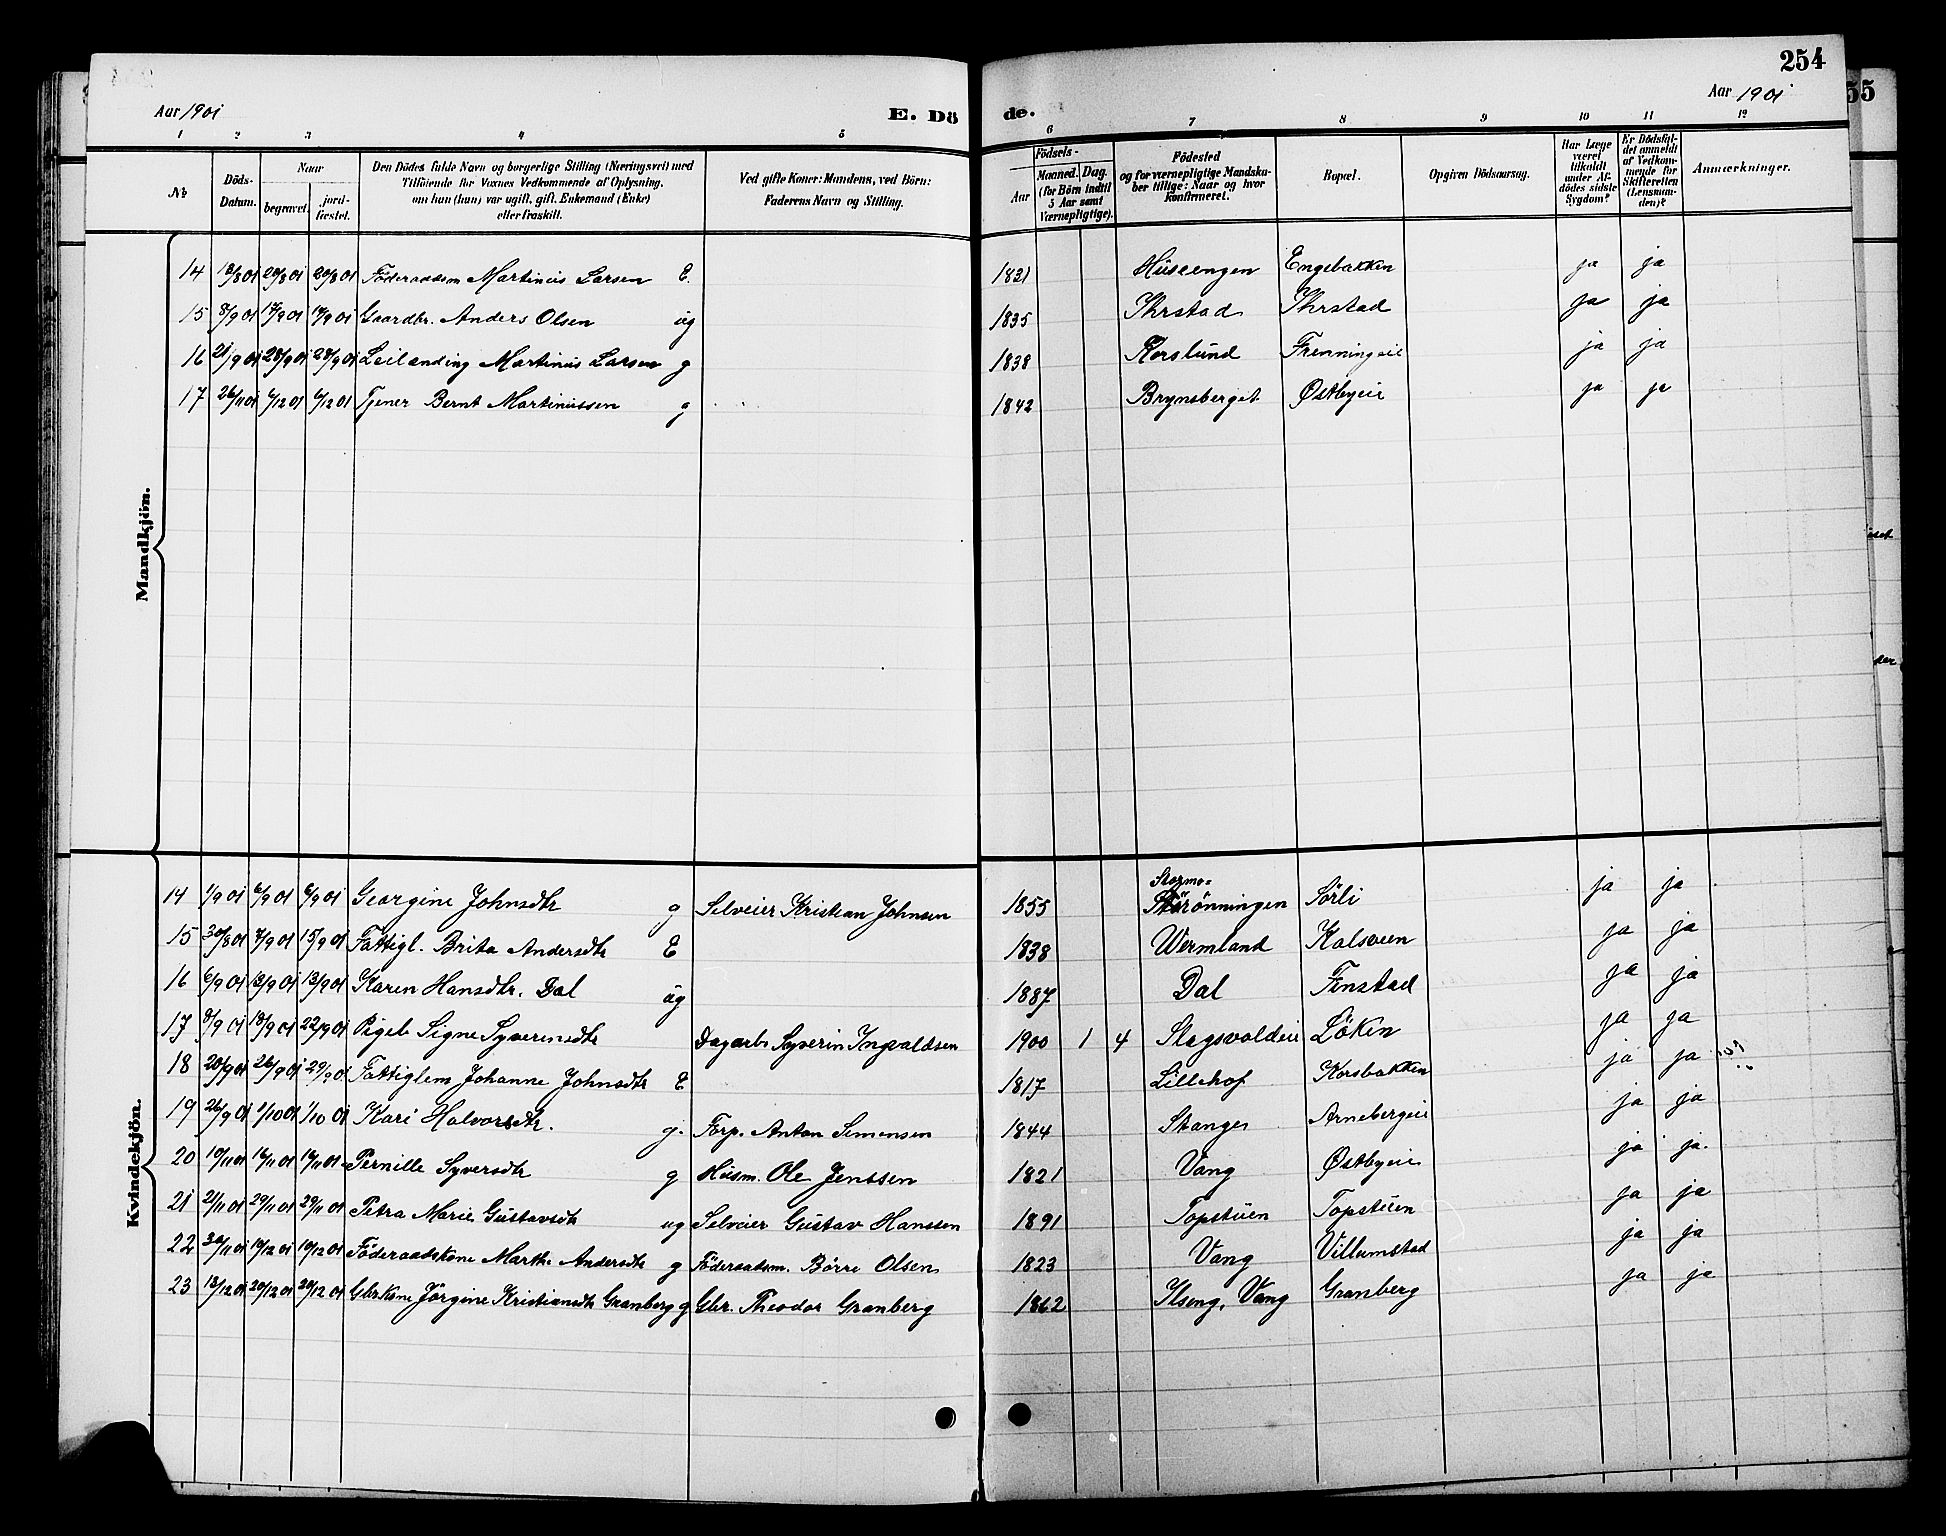 254
55
Aar 1901
E. Dö
de.
Aar 1901
1 2 3 4 5 6 7 8 9 10 11 12
No
Döds-
Datum.
Naar
begravet.
jord-
fæstet.
Den Dödes fulde Navn og borgerlige Stilling (Næringsvei) med
Tilföiende for Voxnes Vedkommende af Oplysning,
om han (hun) var ugift, gift, Enkemand (Enke)
eller fraskilt.
Ved gifte Koner: Mandens, ved Börn:
Faderens Navn og Stilling.
Födsels-
Aar
Maaned. Dag.
(for Börn indtil
5 Aar samt
Værnepligtige).
Födested
og for værnepligtige Mandska-
ber tillige: Naar og hvor
konfirmeret.
Bopæl.
Opgiven Dödsaarsag.
Har Læge
været
tilkaldt
under Af-
dödes sidste
Sygdom?
Er Dödsfal-
det anmeldt
af Vedkom-
mende for
Skifteretten
(Lensman-
den)?
Anmærkninger.
Mandkjön.
14 13/8 01 20/8 01 20/8 01 Föderaadsm Martinus Larsen E. 1821 Huseengen Engebakken ja ja
15 8/9 01 17/9 01 17/9 01 Gaardbr. Anders Olsen ug 1835 Thrstad Thrstad ja ja
16 21/9 01 28/9 01 28/9 01 Leilending Martinus Larsen g 1838 Korslund Frenningeie ja ja
17 26/11 01 6/12 01 6/12 01 Tjener Bernt Martinussen g 1842 Brynsberget Østbyeie ja ja
Kvindekjön.
14 1/9 01 6/9 01 6/9 01 Georgine Johnsdtr g Selveier Kristian Johnsen 1855 Stormo= rönningen Sörli ja ja
15 30/8 01 7/9 01 15/9 01 Fattigl. Brita Andersdtr E 1838 Wermland Kalsveen ja ja
16 6/9 01 13/9 01 13/9 01 Karen Hansdtr. Dal ug 1887 Dal Finstad ja ja
17 8/9 01 13/9 01 22/9 01 Pigeb Signe Syverinsdtr Dagarb Syverin Ingvaldsen 1900 1 4 Slagsvoldeie Löken ja ja
18 20/9 01 26/9 01 29/9 01 Fattiglem Johanne Johnsdtr E 1817 Lillehof Korsbakken ja ja
19 26/9 01 1/10 01 1/10 01 Kari Halvorsdtr. g. Forp. Anton Simensen 1844 Stange Arnebergeie ja ja
20 10/11 01 16/11 01 16/11 01 Pernille Syversdtr g Husm. Ole Jenssen 1821 Vang Østbyeie ja ja.
21 21/11 01 29/11 01 29/11 01 Petra Marie Gustavsdtr ug Selveier Gustav Hanssen 1891 Topstuen Topstuen ja ja
22 30/11 01 10/12 01 10/12 01 Föderaadskone Marthe Andersdtr g Föderaadsm. Börre Olsen 1823 Vang Villumstad ja ja
23 13/12 01 20/12 01 20/12 01 Gbrkone Jörgine Kristiansdtr Granberg g Gbr. Theodor Granberg 1862 Ilseng, Vang Granberg ja ja